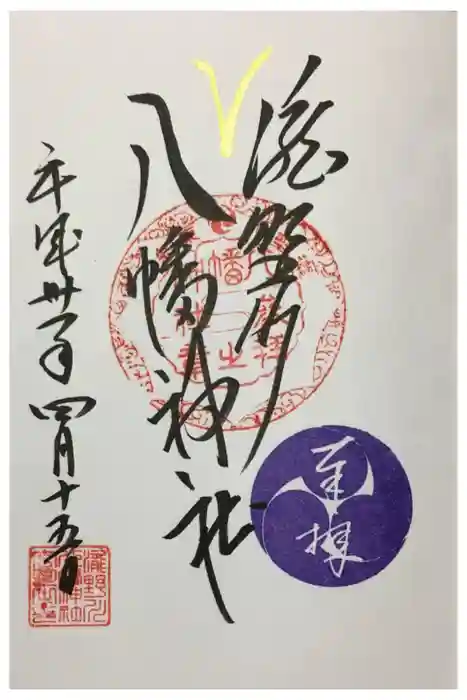 奉拝
滝野川
八幡神社
平成卅一年四月十五日